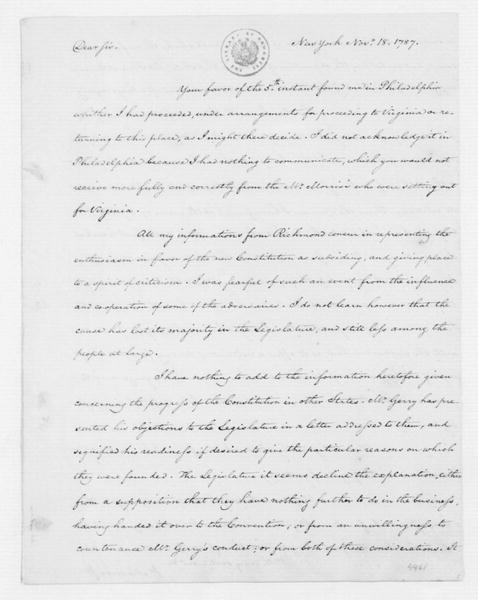 Dear Sir. New York Novr. 18. 1787.
Your favor of the 5th. instant found me in Philadelphia
whither I had proceeded, under arrangements for proceeding to Virginia or re-
turning to this place, as I might there decide. I did not acknowledge it in
Philadelphia because I had nothing to communicate, which you would not
receive more fully and correctly from the Mr. Morris's who were setting out
for Virginia.
All my informations from Richmond concur in representing the
enthusiasm in favor of the new Constitution as subsiding, and giving place
to a spirit of criticism. I was fearful of such an event from the influence
and co-operation of some of the adversaries. I do not learn however that the
cause has lost its majority in the Legislature, and still less among the
people at large.
I have nothing to add to the information heretofore given
concerning the progress of the Constitution in other States. Mr. Gerry has pre-
sented his objections to the Legislature in a letter addressed to them, and
signified his readiness if desired to give the particular reasons on which
they were founded. The Legislature it seems decline the explanation, either
from a supposition that they have nothing further to do in the business,
having handed it over to the Convention; or from an unwillingness to
countenance Mr. Gerry's conduct; or from both of these considerations. It